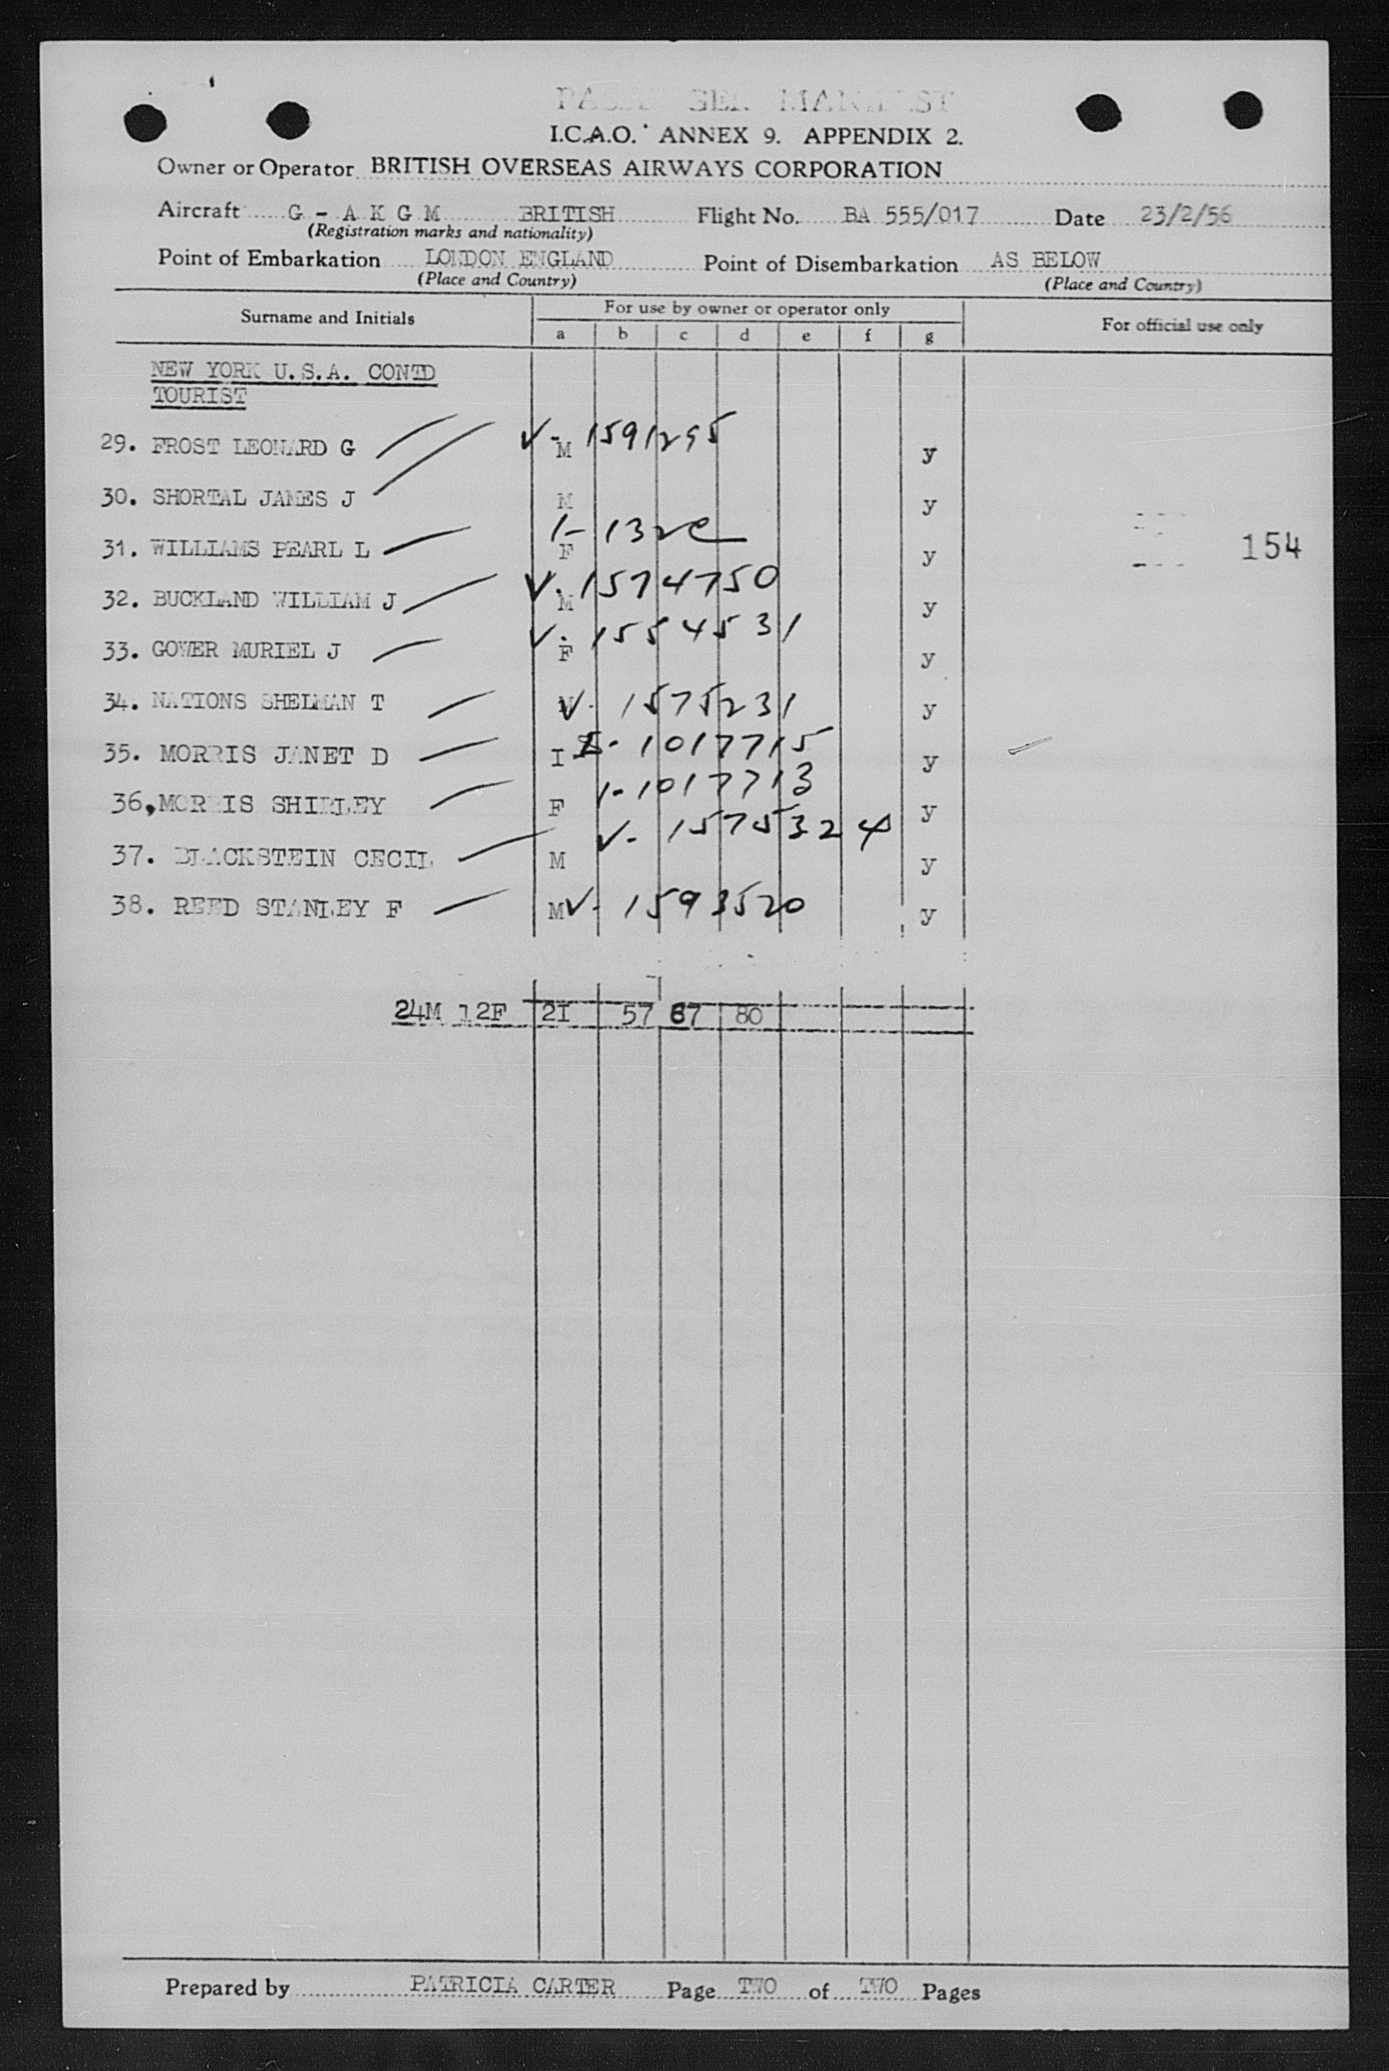 PASSENGER MANIFEST
I.C.A.O. ANNEX 9. APPENDIX 2.
Owner or Operator BRITISH OVERSEAS AIRWAYS CORPORATION
Aircraft G - A K G M BRITISH Flight No. BA 555/017 Date 23/2/56
(Registration marks and nationality)
Point of Embarkation LONDON ENGLAND Point of Disembarkation AS BELOW
(Place and Country) (Place and Country)
Surname and Initials For use by owner or operator only For official use only
a b c d e f g
NEW YORK U.S.A. CONTD
TOURIST
29. FROST LEONARD G M V-1591295 y
30. SHORTAL JAMES J M y
31. WILLIAMS PEARL L F 1-132 y
154
32. BUCKLAND WILLIAM J M V-1574750 y
33. GOWER MURIEL J F V-1554531 y
34. NATIONS SHELMAN T V-1575231 y
35. MORRIS JANET D I I-1017715 y
36. MORRIS SHIRLEY F 1-1017713 y
37. BLACKSTEIN CECIL M V-1575324 y
38. REED STANLEY F M V-1593520 y
24M 12F 2I 57 67 80
Prepared by PATRICIA CARTER Page TWO of TWO Pages